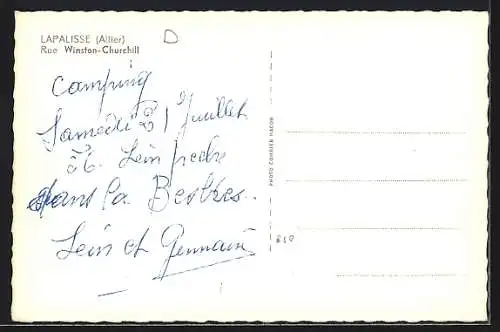 LAPALISSE (Allier)
Rue Winston-Churchill
Camping
Samedi 21 Juillet
56. Lein peche
dans la Besbres.
Lein et Germain
PHOTO COMBIER MACON